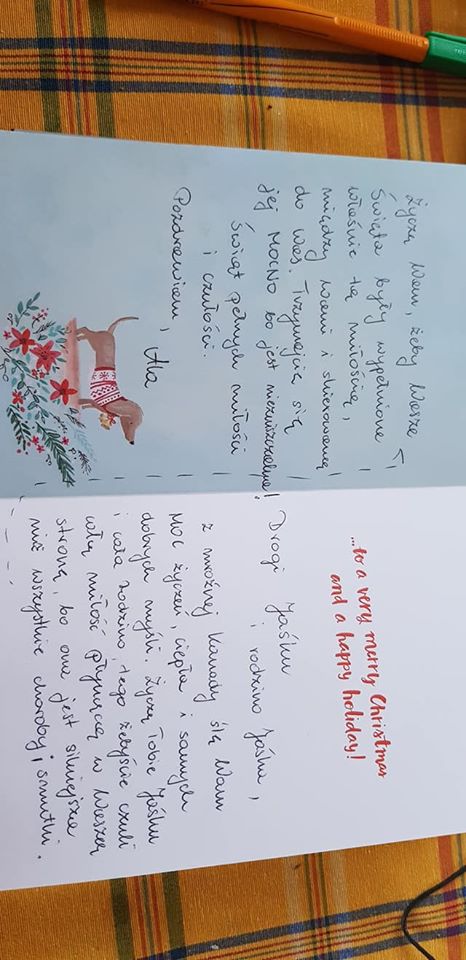 ...to a very merry Christmas
and a happy holiday!
Drogi Jaśku
i rodzino Jaśka,
z mroźnej Kanady ślę Wam
moc życzeń, ciepła i samych
dobrych myśli. Życzę Tobie Jaśku
i całej rodzinie, tego żebyście czuli
całą miłość płynącą w Waszą
stronę, bo ona jest silniejsza
niż wszystkie choroby i smutki.
Życzę Wam, żeby Wasze
Święta były wypełnione
właśnie tą miłością,
między Wami i skierowaną
do Was. Trzymajcie się
jej MOCNO bo jest niezniszczalna!
Świąt pełnych miłości
i czułości.
Pozdrawiam, Ala